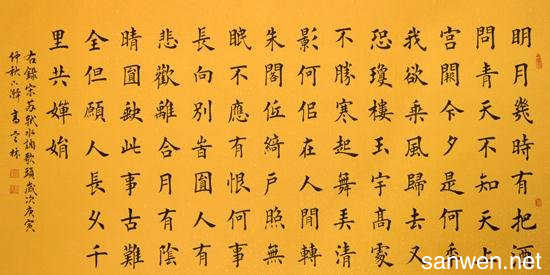 明月幾時有把酒
問青天不知天上
宮闕今夕是何秊
我欲乘風歸去又
恐瓊樓玉宇高處
不勝寒起舞弄清
影何佀在人間轉
朱閣低綺戶照無
眠不應有恨何事
長向別旹圓人有
悲歡離合月有陰
晴圓缺此事古難
全但願人長久千
里共嬋娟
右錄宋蘇軾水調歌頭歲次庚寅
仲秋 高 林
sanwen.net